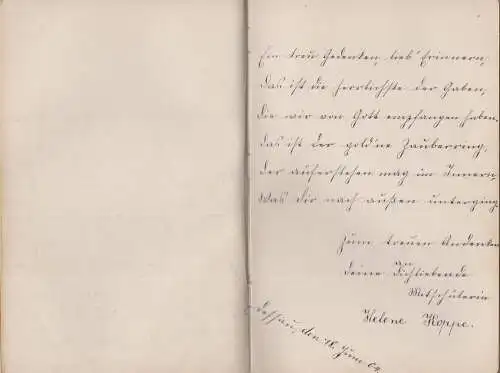 Ein treu Gedenken, lieb' Erinnern,
Das ist die herrlichste der Gaben,
Die wir von Gott empfangen haben.
Das ist der gold'ne Zauberring,
Der auferstehen mag im Innern,
Was Dir nach außen unterging.
Zum treuen Andenken
an
Deine Dichliebende
Mitschülerin
Helene Hoppe.
Dessau, den 18. Juni 04.